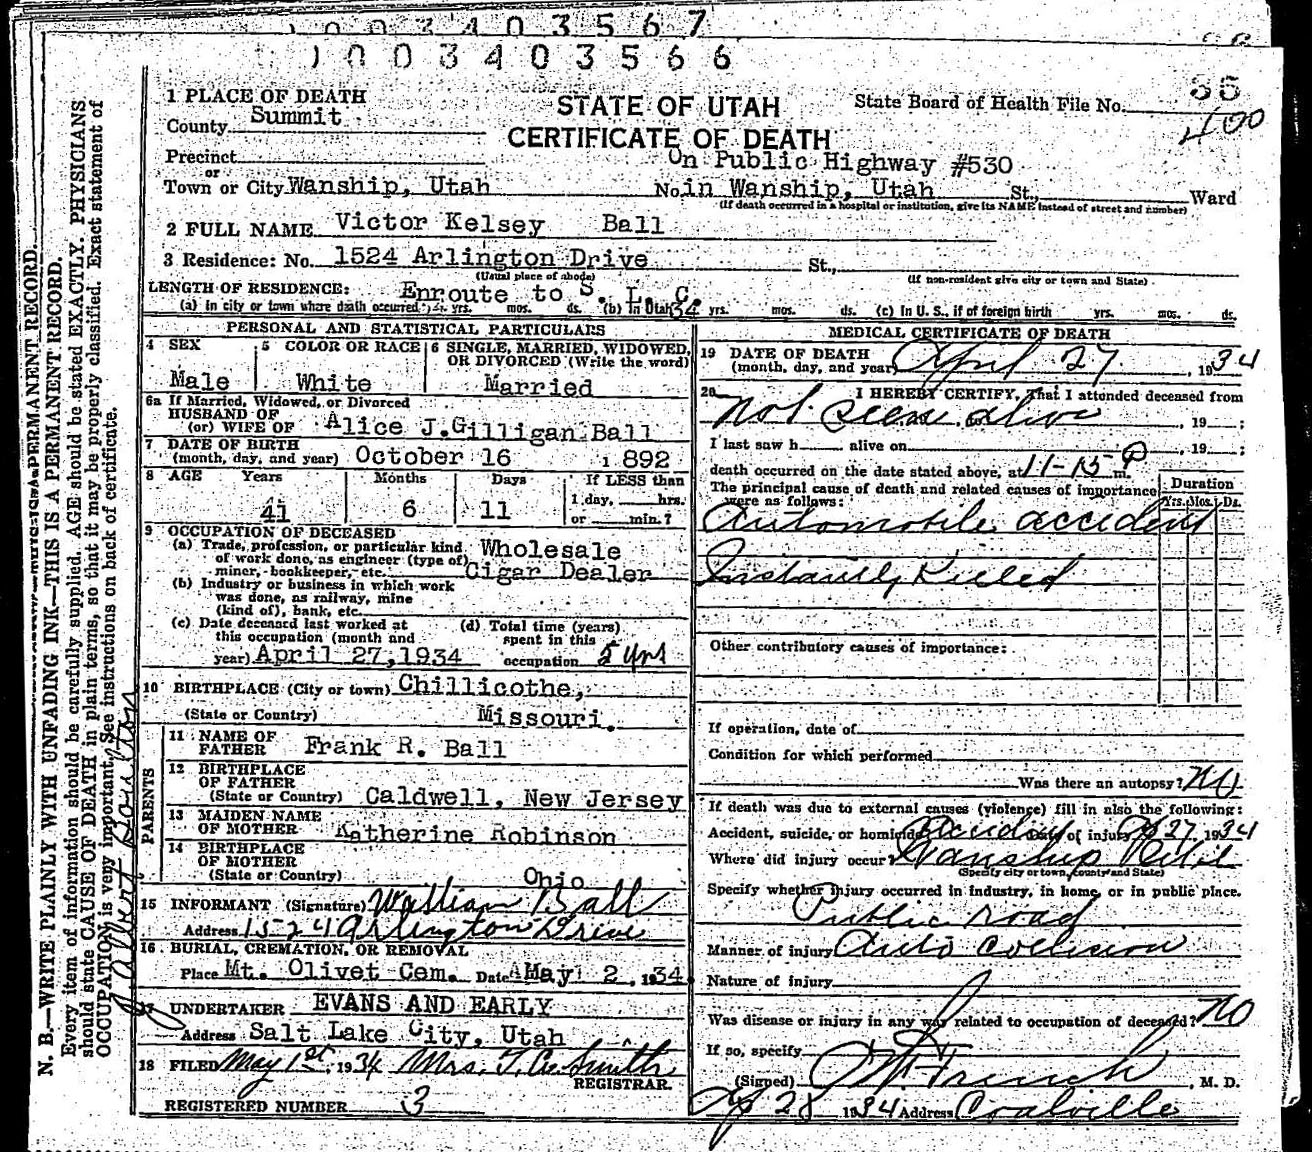 1003403567
1003403566
1 PLACE OF DEATH
County Summit
STATE OF UTAH
CERTIFICATE OF DEATH
State Board of Health File No. 35
400
Precinct
or
Town or City Wanship, Utah
On Public Highway #530
No. in Wanship, Utah St., Ward
(If death occurred in a hospital or institution, give its NAME instead of street and number)
2 FULL NAME Victor Kelsey Ball
3 Residence: No. 1524 Arlington Drive St.,
(Usual place of abode)
(If non-resident give city or town and State)
LENGTH OF RESIDENCE: Enroute to S. L. C.
(a) In city or town where death occurred yrs. mos. ds. (b) In Utah 34 yrs. mos. ds. (c) In U. S., if of foreign birth yrs. mos. ds.
PERSONAL AND STATISTICAL PARTICULARS
4 SEX
Male
5 COLOR OR RACE
White
6 SINGLE, MARRIED, WIDOWED,
OR DIVORCED (Write the word)
Married
6a If Married, Widowed, or Divorced
HUSBAND OF
(or) WIFE OF Alice J. Gilligan Ball
7 DATE OF BIRTH
(month, day, and year) October 16 1892
8 AGE Years Months Days If LESS than
1 day, hrs.
41 6 11 or min.?
9 OCCUPATION OF DECEASED
(a) Trade, profession, or particular kind
of work done, as engineer (type of)
miner, bookkeeper, etc. Wholesale
Cigar Dealer
(b) Industry or business in which work
was done, as railway, mine
(kind of), bank, etc.
(c) Date deceased last worked at
this occupation (month and
year) April 27, 1934
(d) Total time (years)
spent in this
occupation 5 yrs
10 BIRTHPLACE (City or town) Chillicothe,
(State or Country) Missouri.
PARENTS
11 NAME OF
FATHER Frank R. Ball
12 BIRTHPLACE
OF FATHER
(State or Country) Caldwell, New Jersey
13 MAIDEN NAME
OF MOTHER Katherine Robinson
14 BIRTHPLACE
OF MOTHER
(State or Country) Ohio
15 INFORMANT (Signature) William Ball
Address 1524 Arlington Drive
16 BURIAL, CREMATION, OR REMOVAL
Place Mt. Olivet Cem. Date May 2, 1934
17 UNDERTAKER EVANS AND EARLY
Address Salt Lake City, Utah
18 FILED May 1st, 1934 Mrs. T. C. Smith
REGISTRAR.
REGISTERED NUMBER 3
MEDICAL CERTIFICATE OF DEATH
19 DATE OF DEATH
(month, day, and year) April 27, 1934
20 I HEREBY CERTIFY, That I attended deceased from
Not seen alive, 19 ;
I last saw h alive on , 19 ;
death occurred on the date stated above, at 11-15 P m.
The principal cause of death and related causes of importance
were as follows:
Duration
Yrs. Mos. Ds.
Automobile accident
Instantly Killed
Other contributory causes of importance:
If operation, date of
Condition for which performed
Was there an autopsy? No
If death was due to external causes (violence) fill in also the following:
Accident, suicide, or homicide of injury 27, 1934
Where did injury occur? Wanship Utah
(Specify city or town, county and State)
Specify whether injury occurred in industry, in home, or in public place.
Public road
Manner of injury Auto collision
Nature of injury
Was disease or injury in any way related to occupation of deceased? No
If so, specify
(Signed) French, M. D.
Ap 28 1934 Address Coalville
N. B.—WRITE PLAINLY WITH UNFADING INK—THIS IS A PERMANENT RECORD.
Every item of information should be carefully supplied. AGE should be stated EXACTLY. PHYSICIANS
should state CAUSE OF DEATH in plain terms, so that it may be properly classified. Exact statement of
OCCUPATION is very important. See instructions on back of certificate.